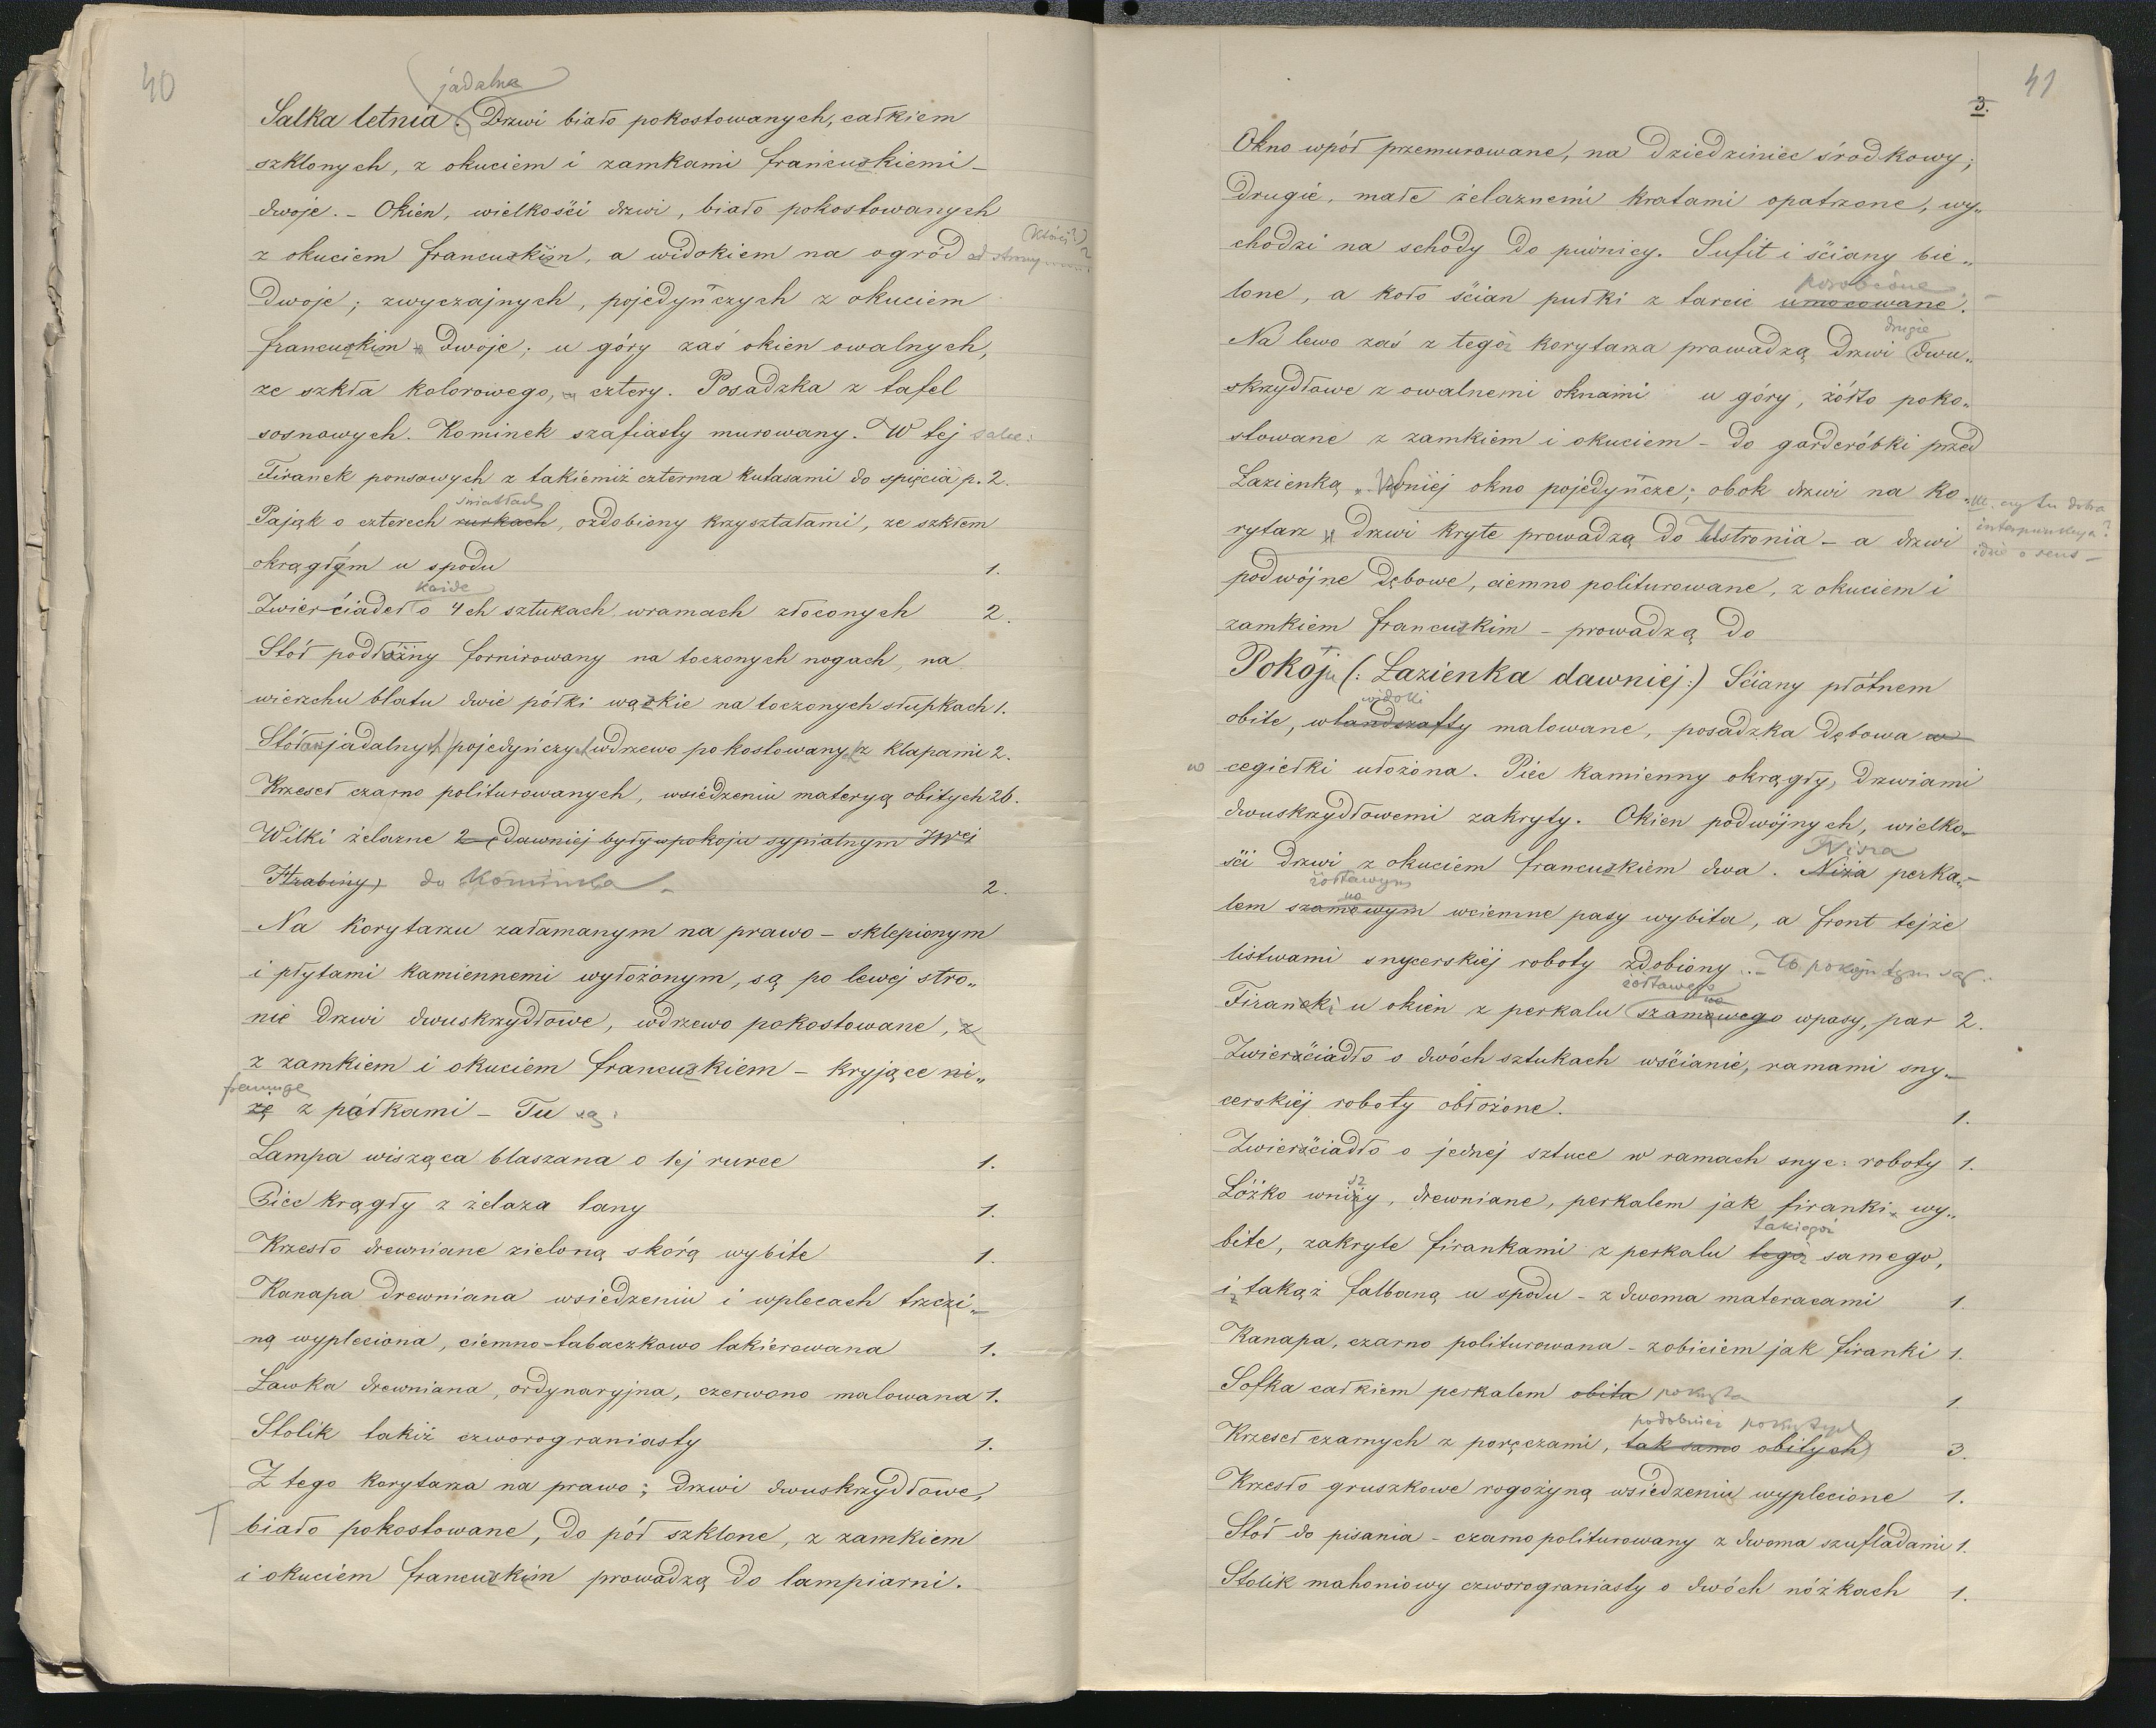 40
jadalna
Salka letnia. Drzwi biało pokostowanych, całkiem
szklonych, z okuciem i zamkami francuskiemi –
dwoje. – Okien, wielkości drzwi, biało pokostowanych
z okuciem francuskim, a widokiem na ogród od strony
(któréj?)
Dwoje; zwyczajnych, pojedyńczych z okuciem
francuskim – Dwoje; u góry zaś okien owalnych,
ze szkła kolorowego, – cztery. Posadzka z tafel
sosnowych. Kominek szafiasty murowany. W tej salce:
Firanek ponsowych z takiemiż czterma kutasami do spięcia p. 2.
światłach
Pająk o czterech rurkach, ozdobiony kryształami, ze szkłem
okrągłym u spodu 1.
każde
Zwierciadeł o 4ch sztukach wramach złoconych 2.
Stół podłóżny fornirowany na toczonych nogach, na
wierzchu blatu dwie półki wązkie na toczonych słupkach 1.
Stołów jadalnych pojedyńczych wdrzewo pokostowanych z klapami 2.
Krzeseł czarno politurowanych, wsiedzeniu materyą obitych 26.
Wilki żelazne 2 (Dawniej były wpokoju sypialnym JWej
Hrabiny) do kominka – 2.
Na korytarzu załamanym na prawo – sklepionym
i płytami kamiennemi wyłożonym, są po lewej stro„
nie drzwi dwuskrzydłowe, wdrzewo pokostowane, z
z zamkiem i okuciem francuskiem – kryjące ni„
framugę
żę z półkami – Tu są:
Lampa wisząca blaszana o 1ej rurce 1.
Piec krągły z żelaza lany 1.
Krzesło drewniane zieloną skórą wybite 1.
Kanapa drewniana wsiedzeniu i wplecach trzci„
ną wypleciona, ciemno-tabaczkowo lakierowana 1.
Ławka drewniana, ordynaryjna, czerwono malowana 1.
Stolik takiż czworograniasty 1.
Z tego korytarza na prawo; Drzwi dwuskrzydłowe,
biało pokostowane, do pół szklone, z zamkiem
i okuciem francuskim prowadzą do lampiarni.
41
3.
Okno wpół przemurowane, na dziedziniec środkowy;
Drugie, małe żelaznemi kratami opatrzone, wy„
chodzi na schody do piwnicy. Sufit i ściany bie„
porobione
lone, a koło ścian pułki z tarcic umocowane. –
drugie
Na lewo zaś z tegoż korytarza prowadzą drzwi dwu„
skrzydłowe z owalnemi oknami u góry, żółto poko„
stowane z zamkiem i okuciem – do garderóbki przed
Łazienką „. Wniej okno pojedyńcze; obok drzwi na ko„
czy tu dobra
interpunkcya?
idzie o sens –
rytarz – drzwi kryte prowadzą do Ustronia – a drzwi
podwójne dębowe, ciemno politurowane, z okuciem i
zamkiem francuskim – prowadzą do
Pokoju (: Łazienka dawniej:) Ściany płótnem
widoki
obite, wlandszafty malowane, posadzka dębowa w
w cegiełki ułożona. Piec kamienny okrągły, drzwiami
dwuskrzydłowemi zakryty. Okien podwójnych, wielko„
Nisza
ści drzwi z okuciem francuskiem dwa. Niża perka„
żółtawym
lem szamowym wciemne pasy wybita, a front tejże
listwami snycerskiéj roboty zdobiony. – W pokoju tym są:
żółtawego
Firanek u okien z perkalu szamowego wpasy, par 2.
Zwierściadło o dwóch sztukach wścianie, ramami sny„
cerskiéj roboty obłożone. 1.
Zwierściadło o jednej sztuce w ramach snyc: roboty 1.
sz
Łóżko wniży, drewniane, perkalem jak firanki wy„
takiegoż
bite, zakryte firankami z perkalu tegoż samego,
i takąż falbaną u spodu – z dwoma materacami 1.
Kanapa, czarno politurowana – zobiciem jak firanki 1.
Sofka całkiem perkalem obita pokryta 1.
podobnież pokrytych
Krzeseł czarnych z poręczami, tak samo obitych 3.
Krzesło gruszkowe rogożyną wsiedzeniu wyplecione 1.
Stół do pisania – czarno politurowany z dwoma szufladami 1.
Stolik mahoniowy czworograniasty o dwóch nóżkach 1.